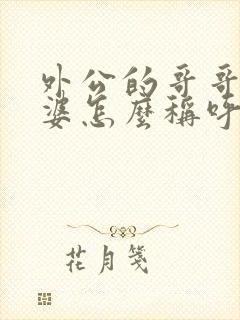 外公的哥哥
婆怎麼稱呼
花月箋